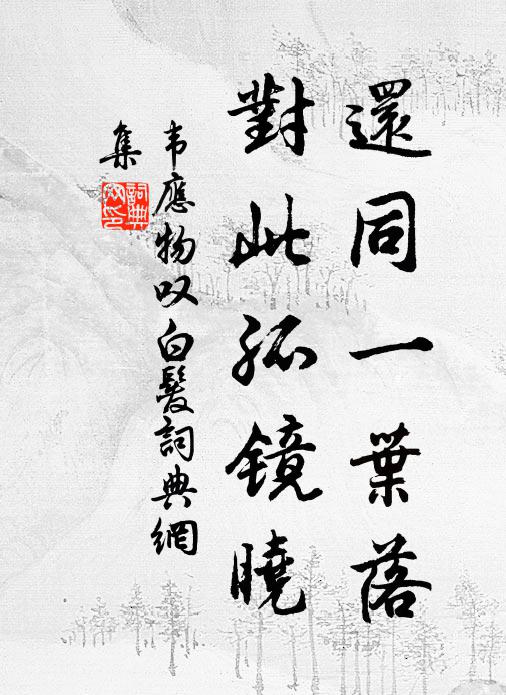 還同一葉落
對此孤镜曉
韦應物叹白髮詞典網
集
詞典網印